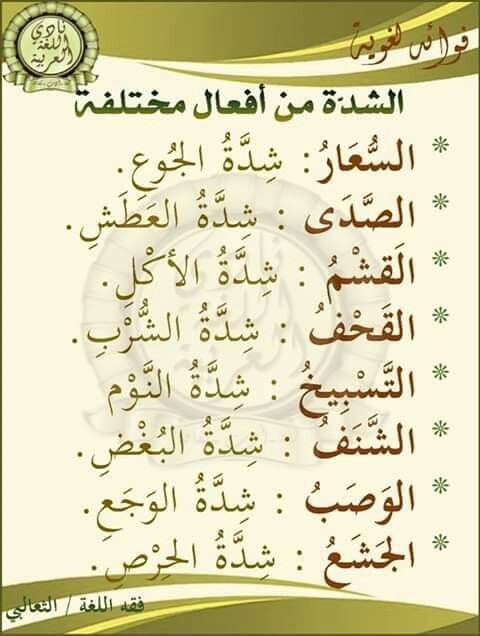 فوائد لغوية
نادي
اللغة
العربية
الشدّة من أفعال مختلفة
* السُّعَارُ : شِدَّةُ الجُوعِ.
* الصَّدَى : شِدَّةُ العَطَشِ.
* القَشْمُ : شِدَّةُ الأكْلِ.
* القَحْفُ : شِدَّةُ الشُّرْبِ.
* التَّسْبِيخُ : شِدَّةُ النَّوْم
* الشَّنَفُ : شِدَّةُ البُغْضِ.
* الوَصَبُ : شِدَّةُ الوَجَعِ.
* الجَشَعُ : شِدَّةُ الحِرْصِ.
فقه اللغة / الثعالبي